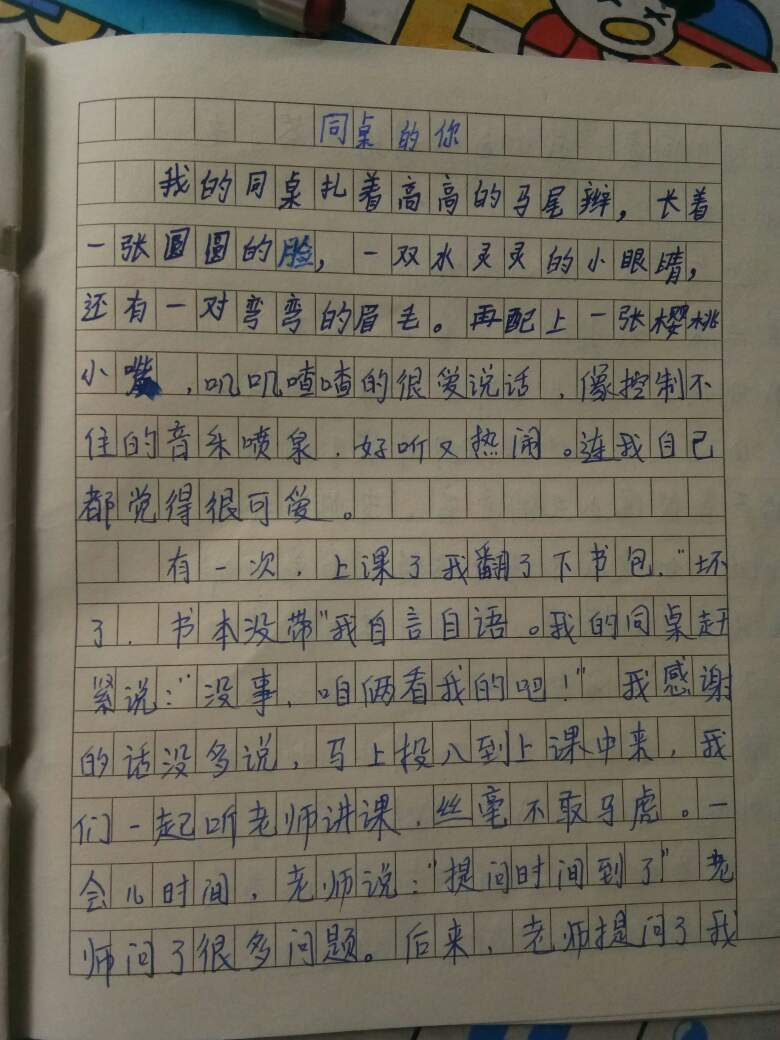 同桌的你
我的同桌扎着高高的马尾辫，长着
一张圆圆的脸，一双水灵灵的小眼睛，
还有一对弯弯的眉毛。再配上一张樱桃
小嘴，叽叽喳喳的很爱说话，像控制不
住的音乐喷泉，好听又热闹。连我自己
都觉得很可爱。
有一次，上课了我翻了下书包，“坏
了，书本没带”我自言自语。我的同桌赶
紧说：“没事，咱俩看我的吧！”我感谢
的话没多说，马上投入到上课中来，我
们一起听老师讲课，丝毫不敢马虎。一
会儿时间，老师说：“提问时间到了”老
师问了很多问题。后来，老师提问了我